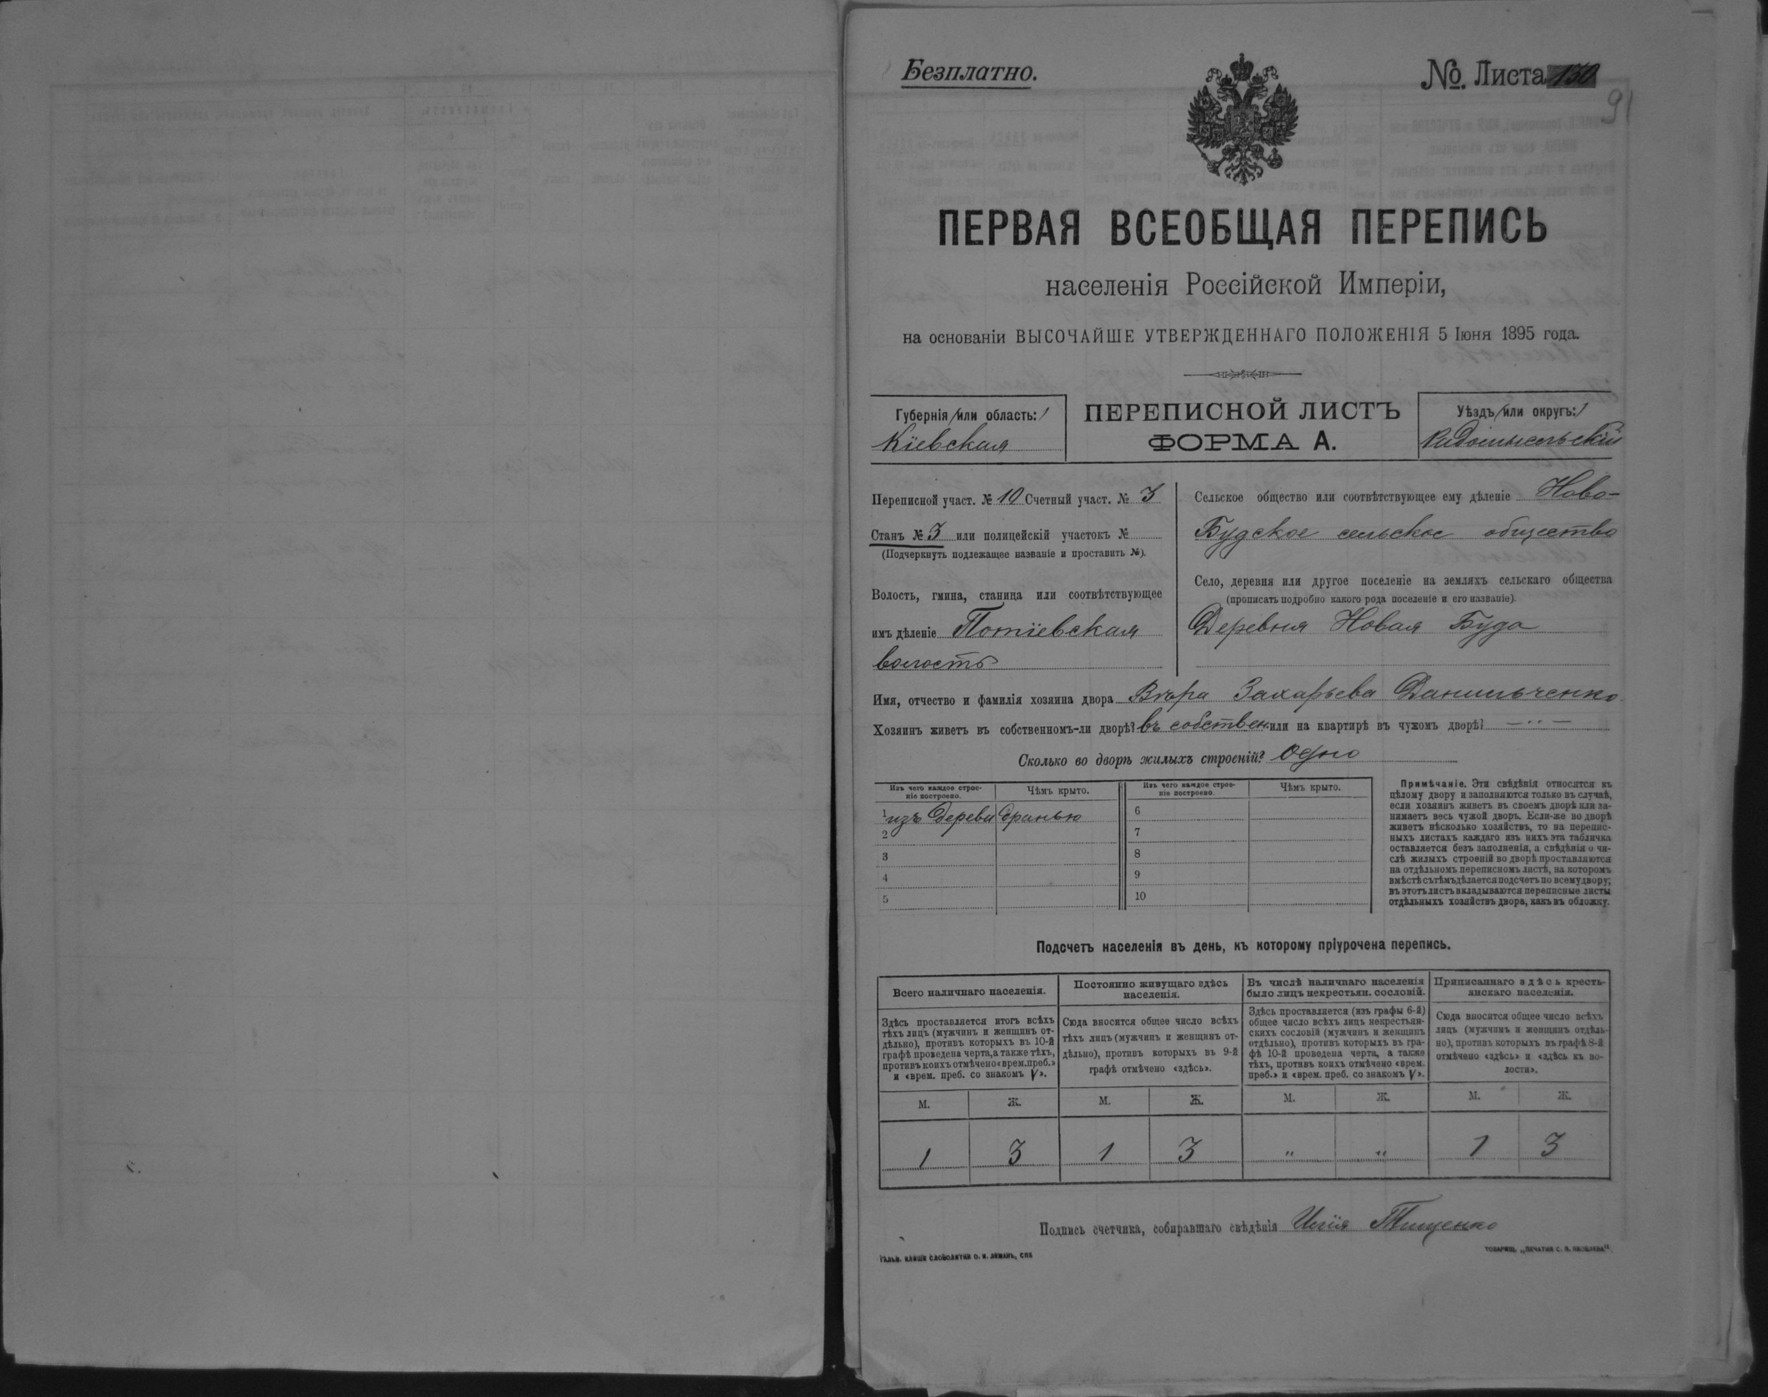 Безплатно.
№. Листа 150
91
ПЕРВАЯ ВСЕОБЩАЯ ПЕРЕПИСЬ
населенія Россійской Имперіи,
на основаніи ВЫСОЧАЙШЕ УТВЕРЖДЕННАГО ПОЛОЖЕНІЯ 5 Іюня 1895 года.
Губернія /или область:/
Кіевская
ПЕРЕПИСНОЙ ЛИСТЪ
ФОРМА А.
Уѣздъ /или округъ:/
Радомысльскій
Переписной участ. № 10 Счетный участ. № 3
Станъ № 3 или полицейскій участокъ №
(Подчеркнуть подлежащее названіе и проставить №).
Волость, гмина, станица или соотвѣтствующее
имъ дѣленіе Потіевская
волость
Сельское общество или соотвѣтствующее ему дѣленіе Ново-
Будское сельское общество
Село, деревня или другое поселеніе на земляхъ сельскаго общества
(прописать подробно какого рода поселеніе и его названіе).
Деревня Новая Буда
Имя, отчество и фамилія хозяина двора Вѣра Захарьева Данильченко
Хозяинъ живетъ въ собственномъ-ли дворѣ? въ собствен или на квартирѣ въ чужомъ дворѣ? — ·· —
Сколько во дворѣ жилыхъ строеній? Одно
Изъ чего каждое строе-
ніе построено.
Чѣмъ крыто.
Изъ чего каждое строе-
ніе построено.
Чѣмъ крыто.
1 изъ Дерева Дранью
2
3
4
5
6
7
8
9
10
Примѣчаніе. Эти свѣдѣнія относятся къ
цѣлому двору и заполняются только въ случаѣ,
если хозяинъ живетъ въ своемъ дворѣ или за-
нимаетъ весь чужой дворъ. Если-же во дворѣ
живетъ нѣсколько хозяйствъ, то на перепис-
ныхъ листахъ каждаго изъ нихъ эта табличка
оставляется безъ заполненія, а свѣдѣнія о чи-
слѣ жилыхъ строеній во дворѣ проставляются
на отдѣльномъ переписномъ листѣ, на которомъ
вмѣстѣ съ тѣмъ дѣлается подсчетъ по всему двору;
въ этотъ листъ вкладываются переписные листы
отдѣльныхъ хозяйствъ двора, какъ въ обложку.
Подсчетъ населенія въ день, къ которому пріурочена перепись.
Всего наличнаго населенія.
Постоянно живущаго здѣсь
населенія.
Въ числѣ наличнаго населенія
было лицъ некрестьян. сословій.
Приписаннаго здѣсь кресть-
янскаго населенія.
Здѣсь проставляется итогъ всѣхъ
тѣхъ лицъ (мужчинъ и женщинъ от-
дѣльно), противъ которыхъ въ 10-й
графѣ проведена черта, а также тѣхъ,
противъ коихъ отмѣчено «врем. преб.»
и «врем. преб. со знакомъ V».
Сюда вносится общее число всѣхъ
тѣхъ лицъ (мужчинъ и женщинъ от-
дѣльно), противъ которыхъ въ 9-й
графѣ отмѣчено «здѣсь».
Здѣсь проставляется (изъ графы 6-й)
общее число всѣхъ лицъ некрестьян-
скихъ сословій (мужчинъ и женщинъ
отдѣльно), противъ которыхъ въ гра-
фѣ 10-й проведена черта, а также
тѣхъ, противъ коихъ отмѣчено «врем.
преб.» и «врем. преб. со знакомъ V».
Сюда вносится общее число всѣхъ
лицъ (мужчинъ и женщинъ отдѣль-
но), противъ которыхъ въ графѣ 8-й
отмѣчено «здѣсь» и «здѣсь къ во-
лости».
М. Ж. М. Ж. М. Ж. М. Ж.
1 3 1 3 " " 1 3
Подпись счетчика, собиравшаго свѣдѣнія Илія Тищенко